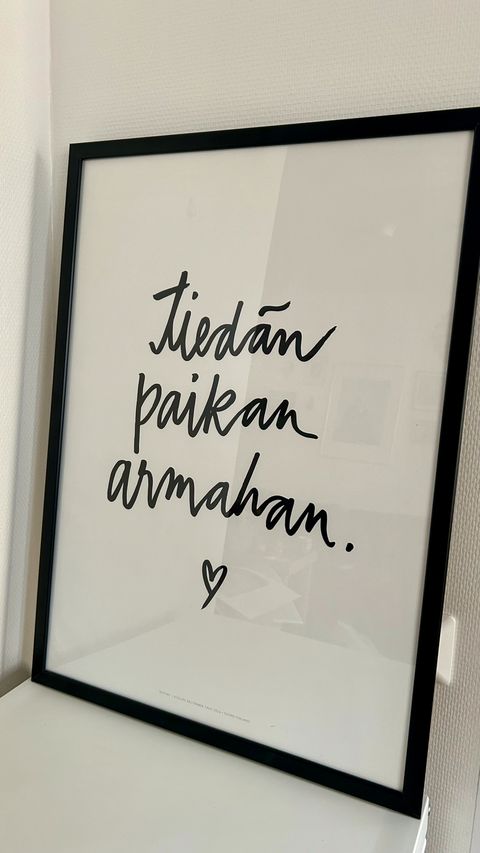 tiedän
paikan
armahan.